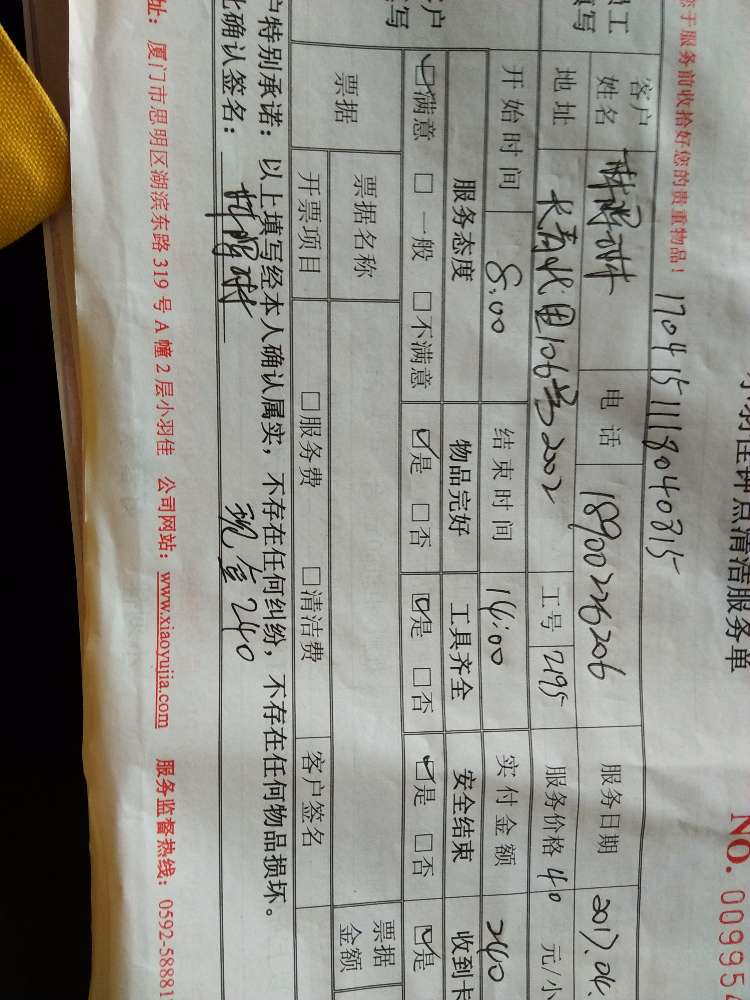 钟点清洁服务单
NO. 00995
1704151118040315
您于服务前收拾好您的贵重物品！
员工 填写 客户姓名 电话 18900226206 服务日期 2017.04.
地址 长青北里106号2002 工号 2195 服务价格 40 元/小
开始时间 8:00 结束时间 14:00 实付金额 240
客户 填写 服务态度 物品完好 工具齐全 安全结束 收到卡
☑满意 □一般 □不满意 ☑是 □否 ☑是 □否 ☑是 □否 ☑是
票据 票据名称 票据金额
开票项目 □服务费 □清洁费 客户签名
户特别承诺：以上填写经本人确认属实，不存在任何纠纷，不存在任何物品损坏。
此确认签名： 现金240
址：厦门市思明区湖滨东路 319 号 A 幢 2 层小羽佳 公司网站：www.xiaoyujia.com 服务监督热线：0592-58881